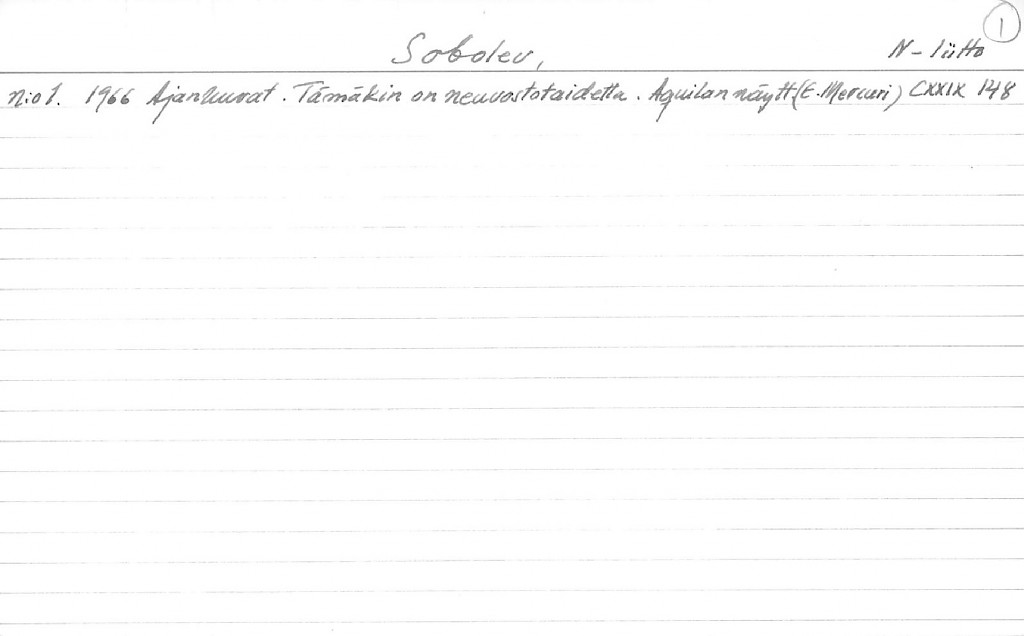 1
Sobolev, N-liitto
n:o 1. 1966 Ajankuvat. Tämäkin on neuvostotaidetta. Aquilan näytt (E. Mercuri) CXXIX 148